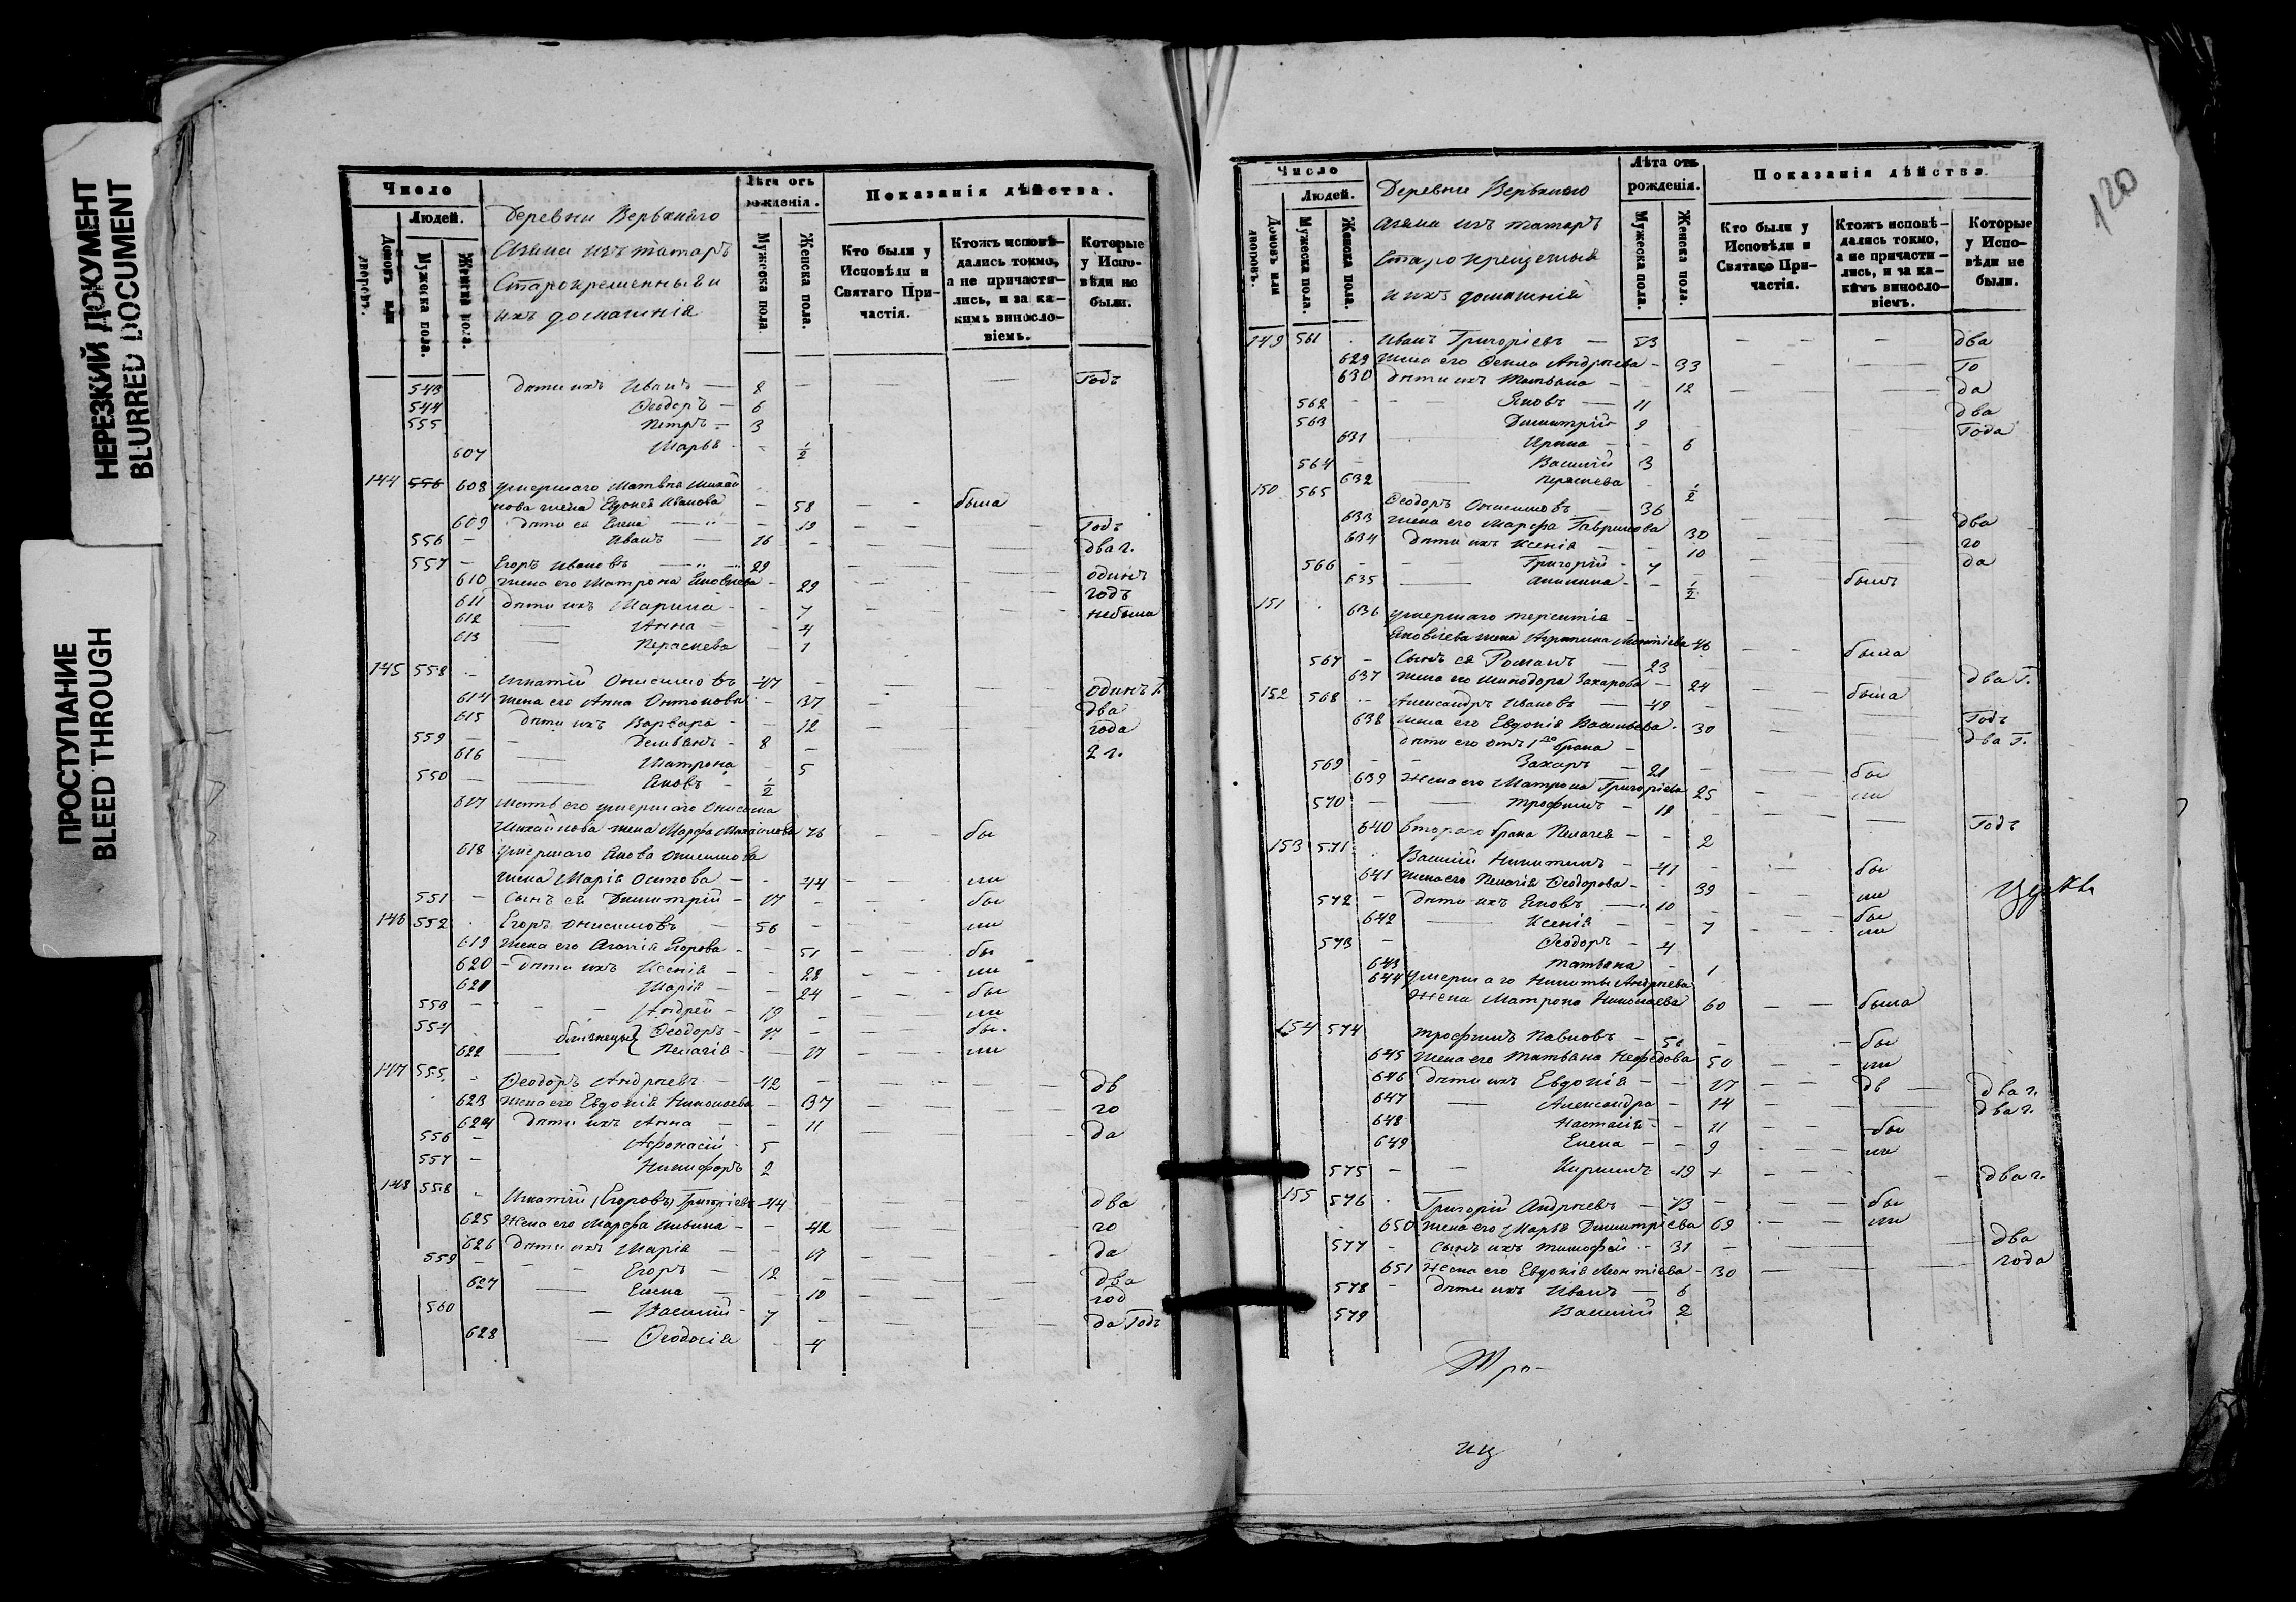 НЕРЕЗКИЙ ДОКУМЕНТ
BLURRED DOCUMENT
ПРОСТУПАНИЕ
BLEED THROUGH
Число
Людей.
Домовъ или дворовъ.
Мужеска пола.
Женска пола.
Деревни Верьхняго
Азяка изъ татаръ
Старокрещенныи и
ихъ домашнія
Лѣта отъ рожденія.
Мужеска пола
Женска пола.
Показанія дѣйства.
Кто были у Исповѣди и Святаго При-частія.
Ктожъ исповѣ-дались токмо, а не причасти-лись, и за ка-кимъ винсло-віемъ.
Которые у Испо-вѣди не были.
543 дѣти ихъ Иванъ — 8 — — — Годъ
544 Ѳеодоръ — 6
555 Петръ — 3
607 Марья - 1/2
144 556 608 умершаго Матвѣя Михай
лова жена Евдокія Иванова — 58 — - была
609 дѣти ея Елена — 19 — — Годъ
556 - Иванъ — 16 - — — два г.
557 - Егоръ Ивановъ — 29 — — одинъ
610 жена его Матрона Яковлева - 29 — — годъ
611 дѣти ихъ Марина - - 7 — — небыла
612 — Анна - - 4
613 — Пераскева - 1
145 558 - Игнатій Онисимовъ 47 - — — одинъ г.
614 жена его Анна Онтонова - 37 — — два
615 дѣти ихъ Варвара - - 12 года
559 - - Демьянъ - 8 - 2 г.
616 — Матрона - 5
550 - — Яковъ - 1/2
617 мать его умершаго Онисима
Михайлова жена Марфа Михайлова 76 - - бы
618 умершаго Якова Онисимова
жена Марія Осипова - - 44 - — ли
551 - Сынъ ея Димитрій - 17 - - — бы
146 552 . Егоръ Онисимовъ — 56 - — ли
619 жена его Агапія Егорова - - 51 - - бы
620 - дѣти ихъ Ксенія - - 28 - - ли
621 Марія - - 24 - - бы
553 - - - Андрей - 19 - — ли
554 . близнецы { Ѳеодоръ - 17 - — бы.
622 — Пелагія - - 17 - — ли
147 555. - Ѳеодоръ Андреевъ - 42 - — — дв
623 жена его Евдокія Николаева - 37 — — го
624 дѣти ихъ Анна - - 11 — — да
556 - Афонасій - 5
557 - Никифоръ 2
148 558 - Игнатій (Егоровъ) Григоріевъ 44 — — два
625 Жена его Марфа Ильина - - 42 — — го
626 дѣти ихъ Марія - - 17 — — да
559 - - - Егоръ - 12 - — — два
627 — Елена - - 10 — — год
560 — Василій - 7 - — — да Годъ
628 — Ѳеодосія - 4
120
Число
Людей.
Домовъ или дворовъ.
Мужеска пола.
Женска пола.
Деревни Верьхняго
Азяка изъ татаръ
Старокрещеныя
и ихъ домашній
Лѣта отъ рожденія.
Мужеска пола.
Женска пола.
Показанія дѣйства.
Кто были у Исповѣди и Святаго При-частія.
Ктожъ исповѣ-дались токмо, а не причасти-лись, и за ка-кимъ винсло-віемъ.
Которые у Испо-вѣди не были.
149 561 . Иванъ Григоріевъ — 53 - - - два
629 жена его Ѳекла Андреева - 33 — — го
630 дѣти ихъ Татьяна - - 12 — — да
562 - - - Яковъ — 11 два
563 Димитрій 9 - года
631 Ирина - - 6
564 - Василій 3
632 — Пераскева - 1/2
150 565 Ѳеодоръ Онисимовъ - 36
633 жена его Марфа Гаврилова 30 — — два
634 дѣти ихъ Ксенія - - 10 — — го
566 - - - Григорій - 7 - — да
635 — Акилина - - 1/2 былъ
151 . 636 умершаго Терентія -
Яковлева жена Агрипина Леонтіева 46 — - была
567 - Сынъ ея Романъ — 23 - два г.
637 жена его Минодора Захарова - 24 — - была
152 568 - Александръ Ивановъ — 49 - Годъ
638 жена его Евдокія Васильева - 30 — два г.
дѣти его отъ 1го брака -
569 - - Захаръ - 21 - — бы
639 Жена его Матрона Григоріева 25 — - ли
570 - — Трофимъ - 18 - — — Годъ
640 втораго брака Пелагея - - 2
153 571 . Василій Никитинъ - 41 - — бы
641 жена его Пелагія Ѳеодорова - - 39 - — ли
572 - дѣти ихъ Яковъ — 10 - — бы
642 — Ксенія - - 7 - — ли
573 - Ѳеодоръ - 4
643 Татьяна - 1
644 умершаго Никиты Андреева
Жена Матрона Николаева 60 — - была
154 574 Трофимъ Павловъ - 51 - - бы
645 жена его Татьяна Нефедова 50 — - ли
646 дѣти ихъ Евдокія - - 17 - - дв — два г.
647 — Александра - 14 — — два г.
648 Настасія - - 11 - - бы
649 Елена - - 9 ли
575 - - Кирилъ - 19 + — — два г.
155 576 . Григорій Андреевъ - 73 - — бы
650 жена его Марья Димитріева 69 - — ли
577 - Сынъ ихъ Тимофей - 31 - — — два
651 Жена его Евдокія Леонтіева - 30 — — года
578 - дѣти ихъ Иванъ — 6
579 Василій 2